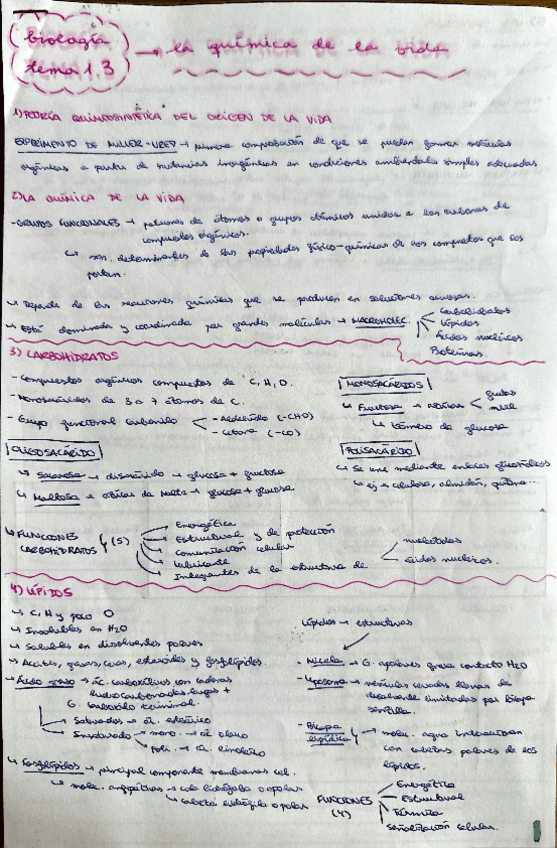 biología
tema 1.3
→ la química de la vida
1) TEORÍA QUIMIOSINTÉTICA DEL ORIGEN DE LA VIDA
EXPERIMENTO DE MILLER-UREY → primera comprobación de que se pueden formar moléculas
orgánicas a partir de sustancias inorgánicas en condiciones ambientales simples adecuadas
2) LA QUÍMICA DE LA VIDA
- GRUPOS FUNCIONALES → patrones de átomos o grupos atómicos unidos a los carbonos de
compuestos orgánicos.
↳ son determinantes de las propiedades físico-químicas de los compuestos que los
portan.
↳ Depende de las reacciones químicas que se producen en soluciones acuosas.
↳ Está dominada y coordinada por grandes moléculas → MACROMOLEC.
Carbohidratos
Lípidos
Ácidos nucleicos
Proteínas.
3) CARBOHIDRATOS
- Compuestos orgánicos compuestos de C, H, O.
- Monosacáridos de 3 a 7 átomos de C.
- Grupo funcional carbonilo
- Aldehído (-CHO)
- Cetona (-CO)
MONOSACÁRIDOS
↳ Fructosa →
frutas
miel
↳ Isómero de glucosa
OLIGOSACÁRIDO
↳ Sacarosa → disacárido → glucosa + fructosa
↳ Maltosa → azúcar de malta → glucosa + glucosa
POLISACÁRIDO
↳ Se une mediante enlaces glucosídicos
↳ ej → celulosa, almidón, quitina...
↳ FUNCIONES
CARBOHIDRATOS (5)
Energética
Estructural y de protección
Comunicación celular
Lubricante
Integrantes de la estructura de
nucleótidos
ácidos nucleicos.
4) LÍPIDOS
↳ C, H y poco O
↳ Insolubles en H2O
↳ Solubles en disolventes
↳ Aceites, grasas, ceras, esteroides y fosfolípidos
↳ Ácido graso → ác. carboxílicos con cadenas
hidrocarbonadas largas +
G. carboxilo terminal.
Saturados → ác. esteárico
Insaturado
mono. → ác. oleico
poli. → ác. linoleico
↳ Fosfolípidos → principal componente membranas cel.
↳ molec. anfipáticas → cola hidrófoba o apolar
↳ cabeza
Lípidos → estructuras
- Micela → G. apolares contacto H2O
- Liposoma → vesículas cerradas llenas de
limitadas por bicapa
sencilla.
- Bicapa
lipídica
→ molec. agua interactúan
con cabezas polares de los
lípidos.
FUNCIONES
(4)
Energética
Estructural
Térmica
Señalización celular.
1